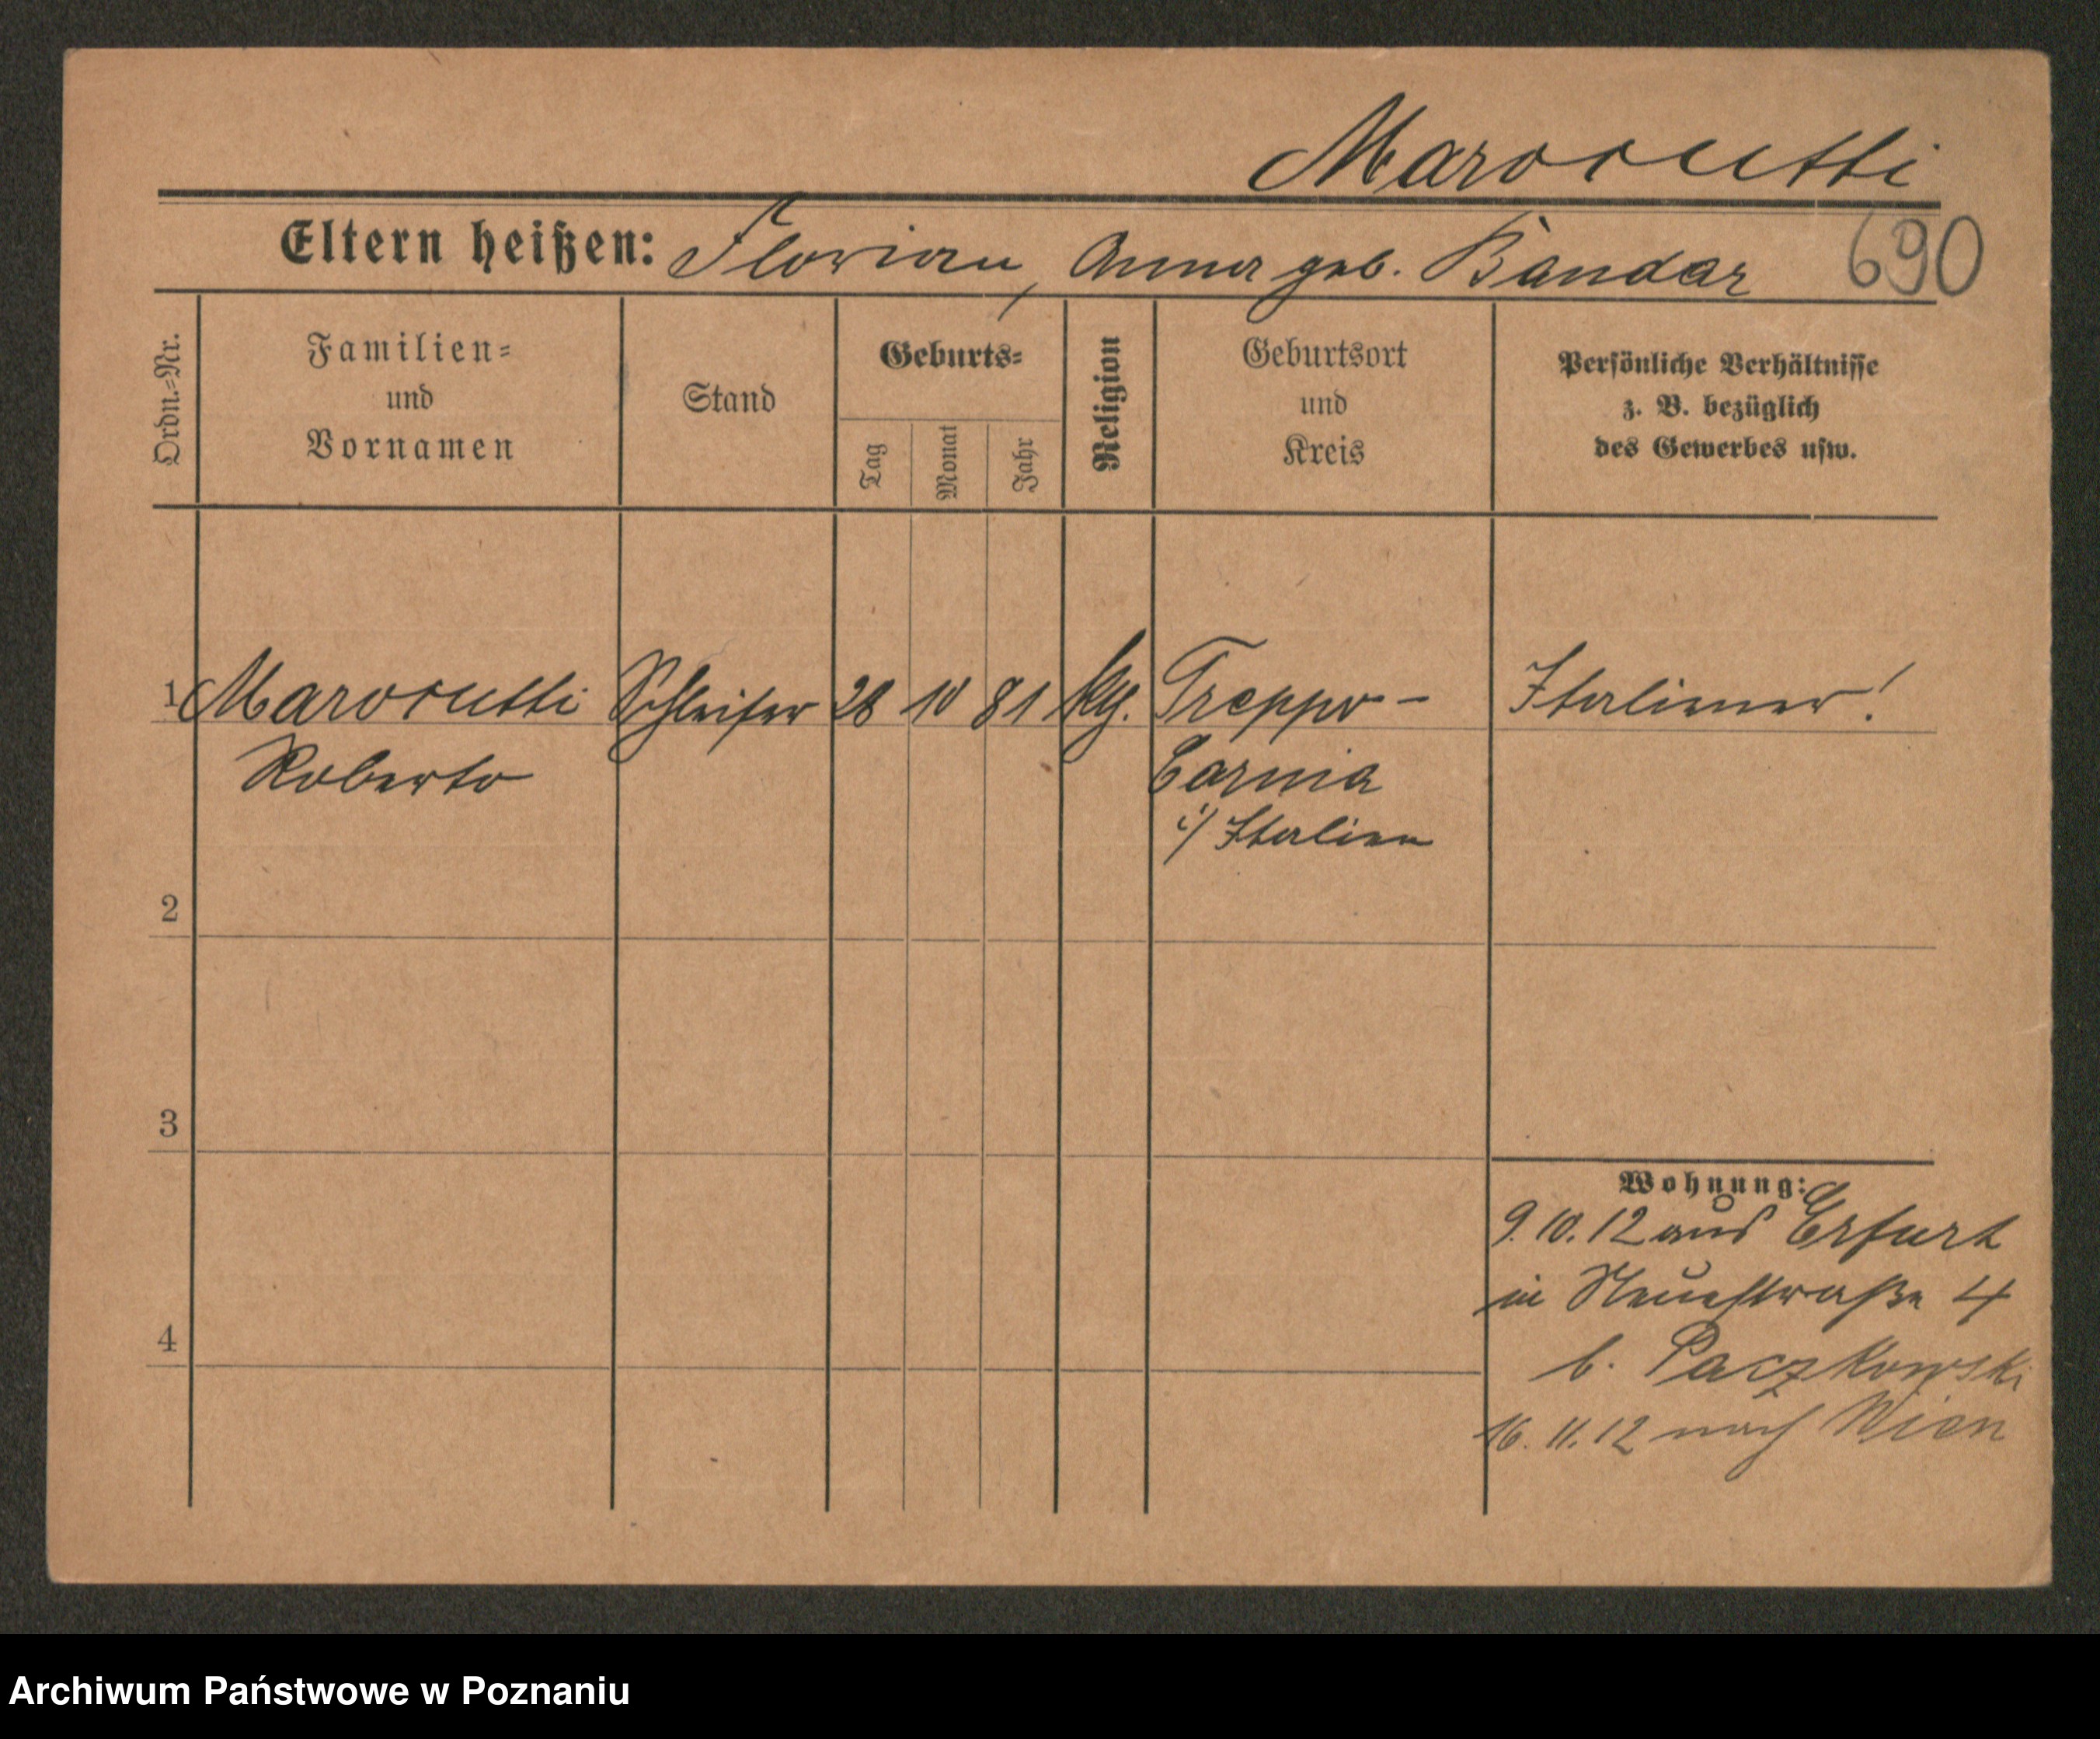 Marocutti
Eltern heißen: Florian, Anna geb. Bandar 690
Ordn.=Nr.
Familien=
und
Vornamen
Stand
Geburts=
Tag
Monat
Jahr
Religion
Geburtsort
und
Kreis
Persönliche Verhältnisse
z. B. bezüglich
des Gewerbes usw.
1 Marocutti Schleifer 28 10 81 kth. Treppo- Italiener!
Roberto Carnia
i/ Italien
2
3
Wohnung:
9.10.12 aus Erfurt
in Neuestraße 4
4
b. Paczkowski
16.11.12 nach Wien
Archiwum Państwowe w Poznaniu